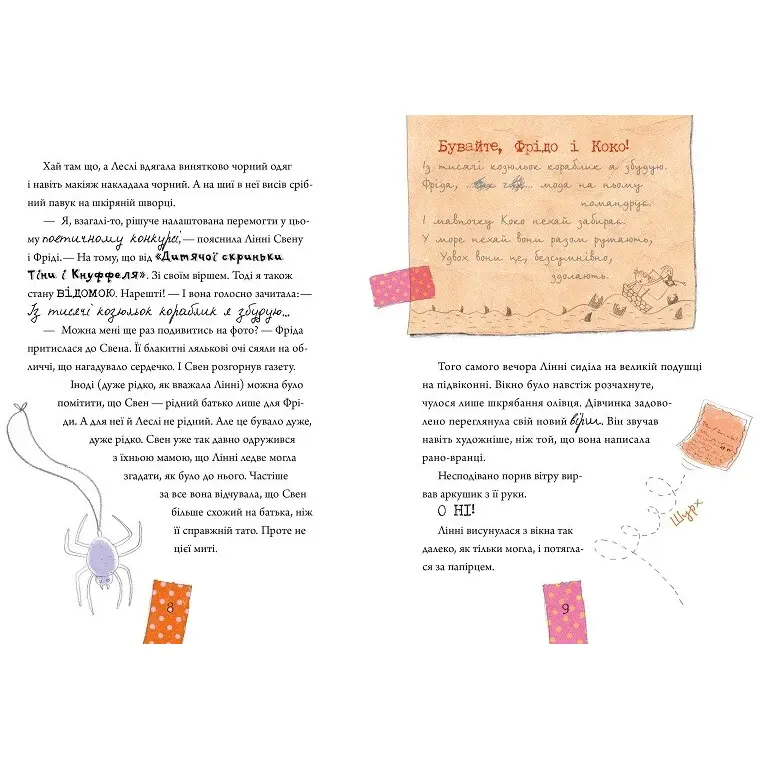 Хай там що, а Леслі вдягала винятково чорний одяг
і навіть макіяж накладала чорний. А на шиї в неї висів сріб-
ний павук на шкіряній шворці.
— Я, взагалі-то, рішуче налаштована перемогти у цьо-
му поетичному конкурсі, — пояснила Лінні Свену
і Фріді. — На тому, що від «Дитячої скриньки
Тіни і Кнуффеля». Зі своїм віршем. Тоді я також
стану ВІДОМОЮ. Нарешті! — І вона голосно зачитала: —
Із тисячі козюльок кораблик я збудую...
— Можна мені ще раз подивитись на фото? — Фріда
притислася до Свена. Її блакитні лялькові очі сяяли на об-
личчі, що нагадувало сердечко. І Свен розгорнув газету.
Іноді (дуже рідко, як вважала Лінні) можна було
помітити, що Свен — рідний батько лише для Фрі-
ди. А для неї й Леслі не рідний. Але це бувало дуже,
дуже рідко. Свен уже так давно одружився
з їхньою мамою, що Лінні ледве могла
згадати, як було до нього. Частіше
за все вона відчувала, що Свен
більше схожий на батька, ніж
її справжній тато. Проте не
цієї миті.
8
Бувайте, Фрідо і Коко!
Із тисячі козюльок кораблик я збудую.
Фріда, мода на ньому
помандрує.
І мавпочку Коко нехай забирає.
У море нехай вони разом рушають,
Удвох вони це, безсумнівно,
здолають.
Того самого вечора Лінні сиділа на великій подушці
на підвіконні. Вікно було навстіж розчахнуте,
чулося лише шкрябання олівця. Дівчинка задово-
лено переглянула свій новий вірш. Він звучав
навіть художніше, ніж той, що вона написала
рано-вранці.
Несподівано порив вітру вир-
вав аркушик з її руки.
О НІ!
Лінні висунулася з вікна так
далеко, як тільки могла, і потягла-
ся за папірцем.
Шурх
9